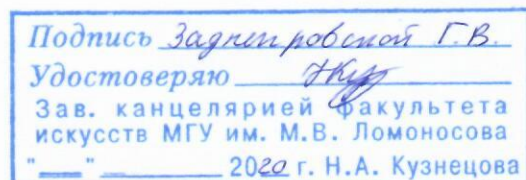 Подпись Заднепровской Г.В.
Удостоверяю
Зав. канцелярией факультета
искусств МГУ им. М.В. Ломоносова
"___" ________ 2020 г. Н.А. Кузнецова